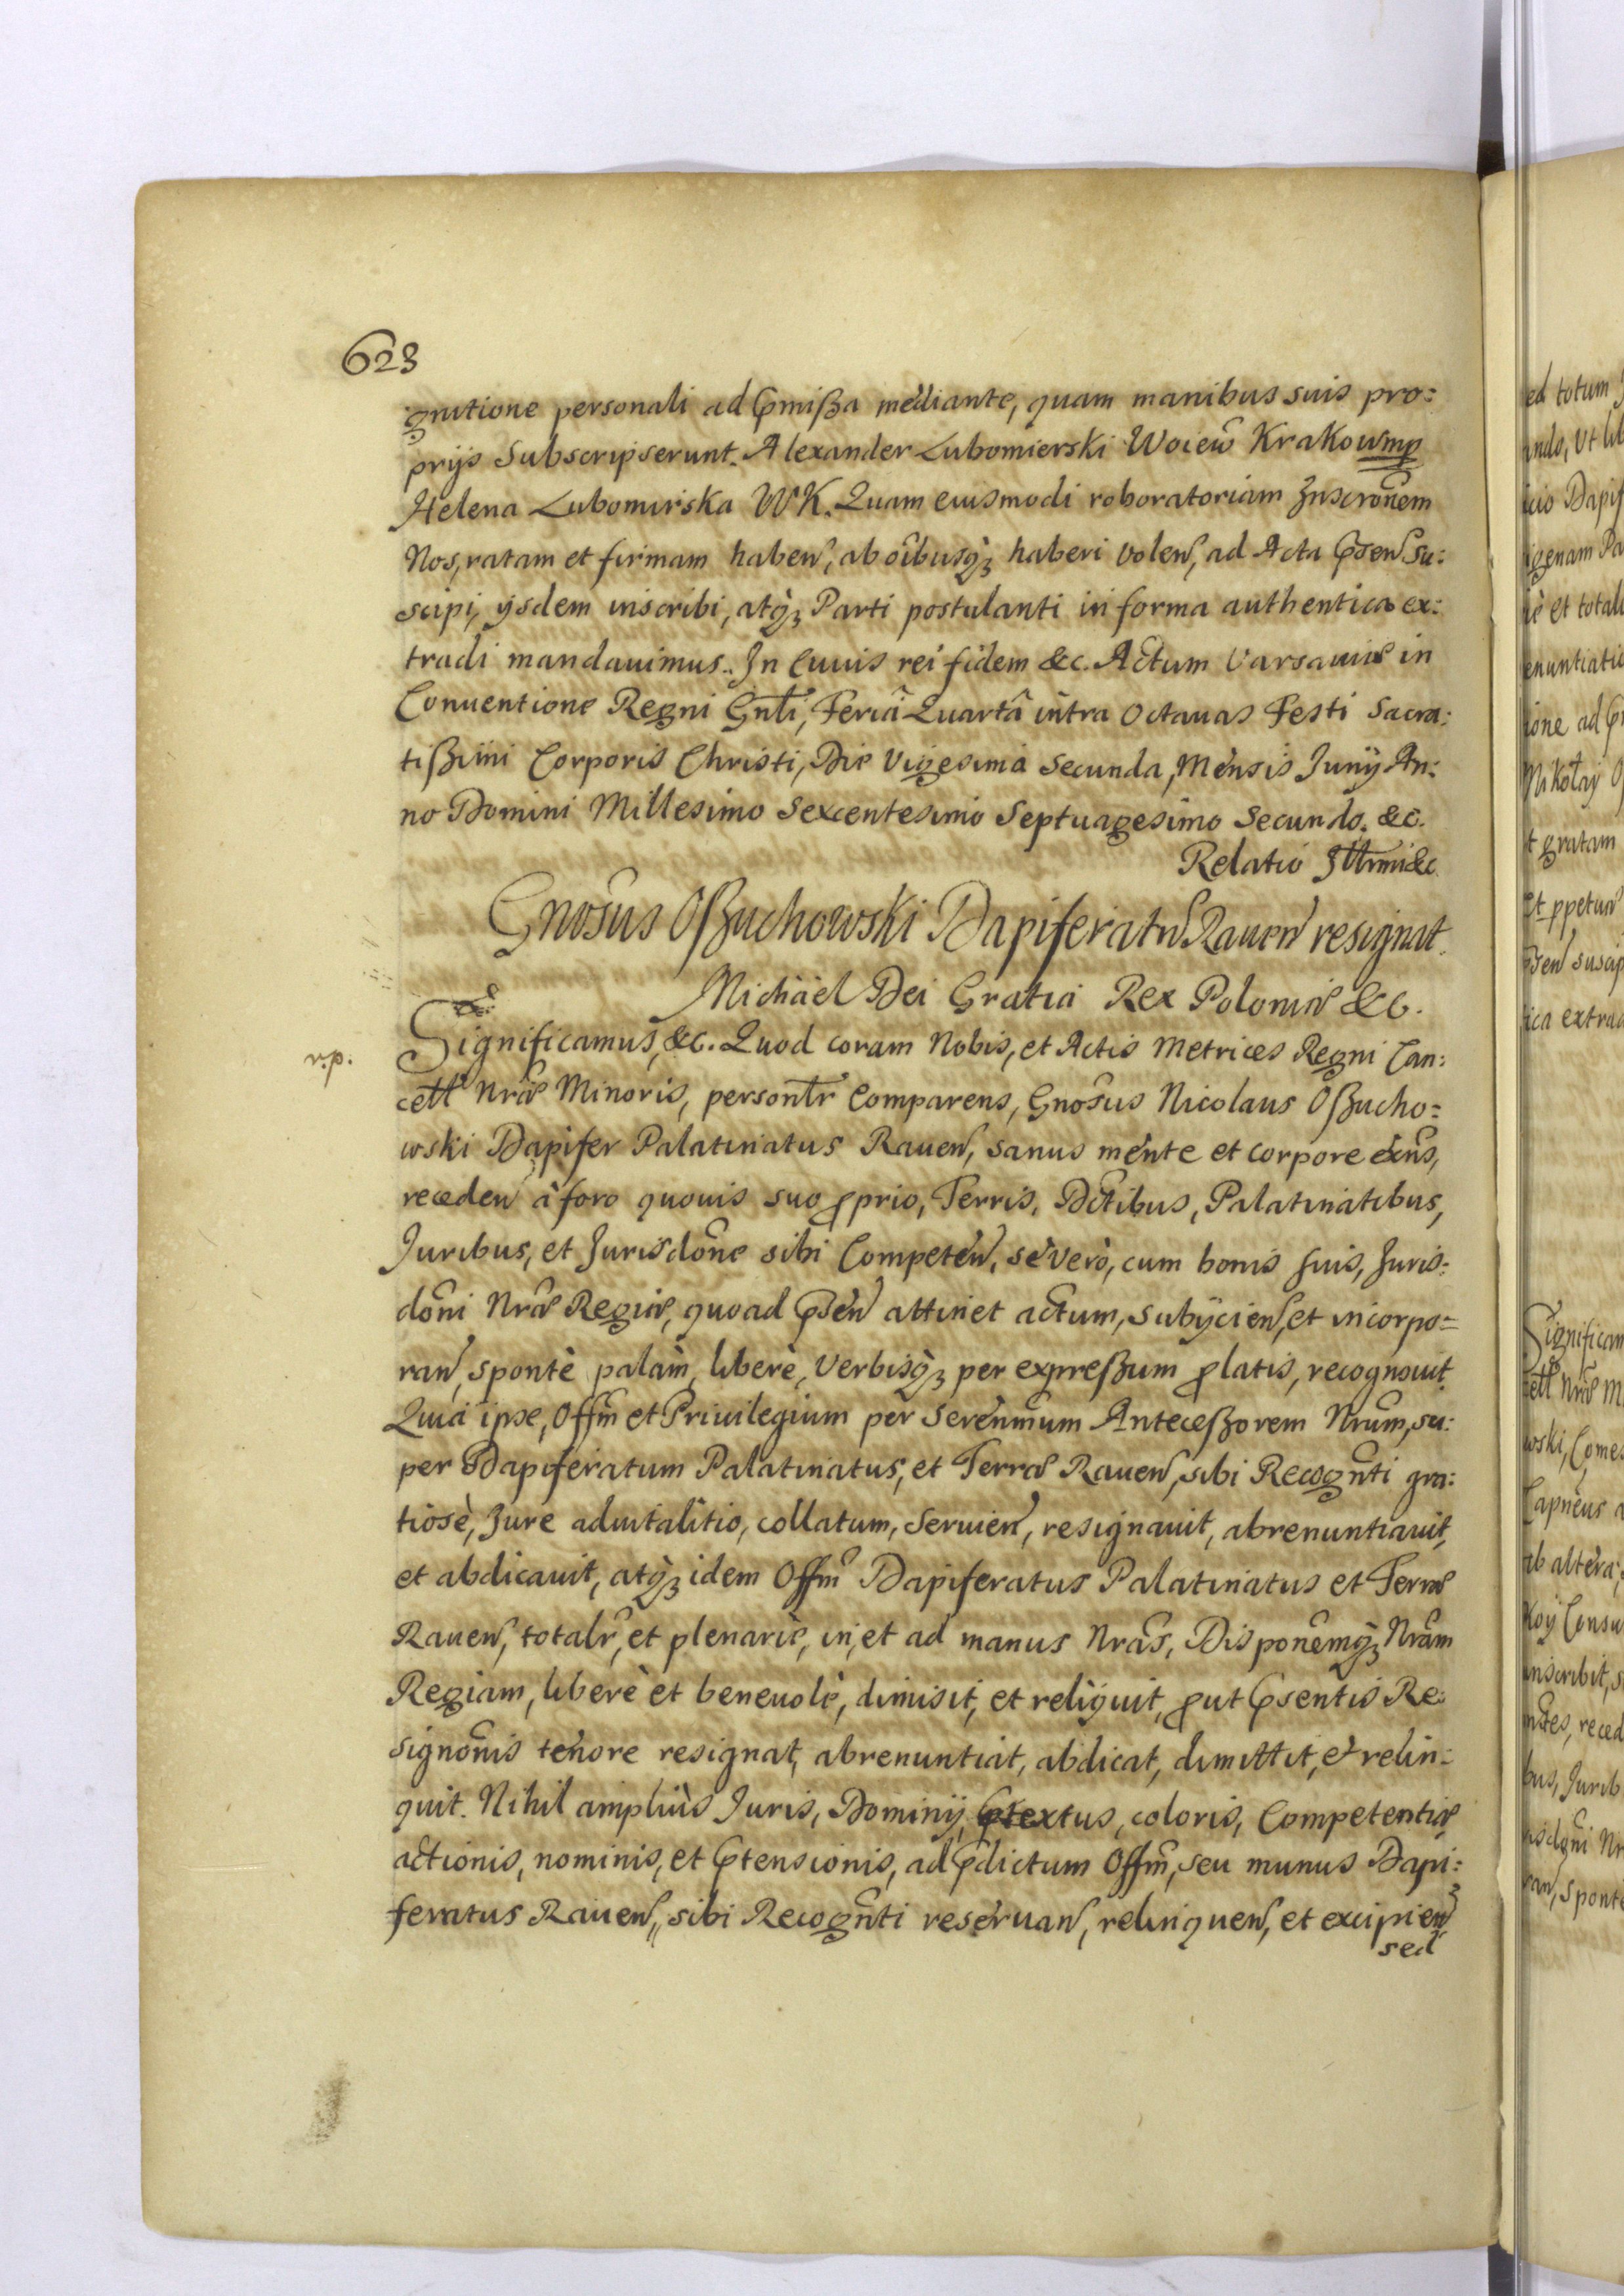 623
gnitione personali ad p̃mißa mediante, quam manibus suis pro:
prijs Subscripserunt. Alexander Lubomierski Woiew̃ Krakow mp
Helena Lubomirska WK. Quam eiusmodi roboratoriam Inscrõnem
Nos, ratam et firmam haben̄, ab oĩbusq̀ꝫ haberi volen̄, ad Acta p̃sen̄ su:
scipi, ijsdem inscribi, atq̀ꝫ Parti postulanti in forma authentica ex:
tradi mandauimus. In Cuius rei fidem &c. Actum Varsauiæ in
Conuentione Regni Gñli, Feriâ Quartâ intra Octauas Festi Sacra:
tißimi Corporis Christi, Die Vigesima Secunda, Mensis Junij An:
no Domini Millesimo Sexcentesimo Septuagesimo Secundo. &c.
Relatio Illrmi &c.
Gnõsus Oßuchowski Dapiferatũ Rauen̄ resignat.
Michael Dei Gratia Rex Poloniæ &c.
r.p.
Significamus, &c. Quod coram Nobis, et Actis Metrices Regni Can:
cell̃ Nr̃æ Minoris, personl̃r Comparens, Gnõsus Nicolaus Oßucho=
wski Dapifer Palatinatus Rauen̄, sanus mente et corpore ex̃ns,
receden̄ à foro quouis suo ꝓprio, Terris, Dc̃tibus, Palatinatibus,
Juribus, et Jurisdõne sibi Competen̄, se verò, cum bonis suis, Juris:
dõni Nr̃æ Regiæ, quoad p̃sen̄ attinet actum, subijcien̄, et incorpo=
ran̄, spontè palàm, liberè, Verbisq̀ꝫ per expreßum ꝓlatis, recognouit.
Quia ipse, Offm̃ et Priuilegium per Serenm̃um Anteceßorem Nrũm, su:
per Dapiferatum Palatinatus, et Terræ Rauen̄, sibi Recogñti gra:
tiosè, Jure aduitalitio, collatum, seruien̄, resignauit, abrenuntiauit,
et abdicauit, atq̀ꝫ idem Offm̃ Dapiferatus Palatinatus et Terræ
Rauen̄, totalr̃, et plenariè, in, et ad manus Nrãs, Disponẽmq̀ꝫ Nrãm
Regiam, liberè et beneuolè, dimisit, et reliquit, ꝓut p̃sentis Re:
signõnis tenore resignat, abrenuntiat, abdicat, dimittit, et relin:
quit. Nihil ampliùs Juris, Dominij, p̃textus, coloris, Competentiæ
actionis, nominis, et p̃tensionis, ad p̃dictum Offm̃, seu munus Dapi:
feratus Rauen̄, sibi Recogñti reseruan̄, relinquen̄, et excipien̄
sed